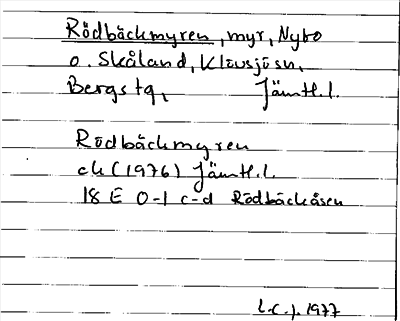 Rödbäckmyren, myr, Nybo
o. Skåland, Klövsjö sn,
Bergs tg, Jämtl. l.
Rödbäckmyren
ek (1976) Jämtl. l.
18 E 0-1 c-d Rödbäckåsen
L.C.J. 1977